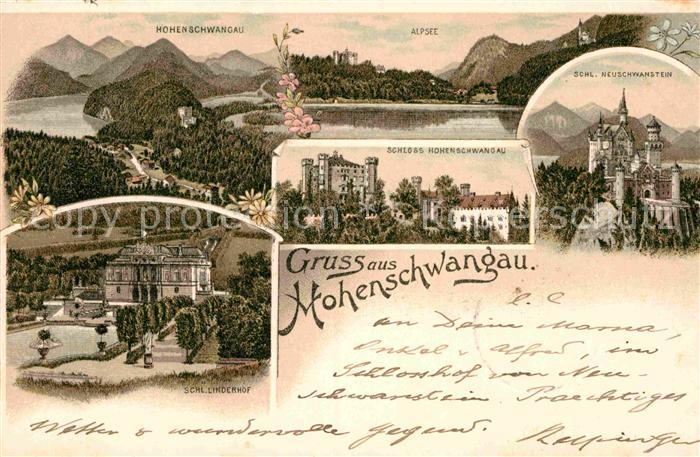 HOHENSCHWANGAU
ALPSEE
SCHL. NEUSCHWANSTEIN
SCHLOSS HOHENSCHWANGAU
copyright protected Kupferschutz
Gruss aus
Hohenschwangau.
SCHL. LINDERHOF
an Deine Mama,
Onkel u. Alfred, im
Schlosshof von Neu-
schwanstein. Praechtiges
Wetter & wundervolle Gegend.